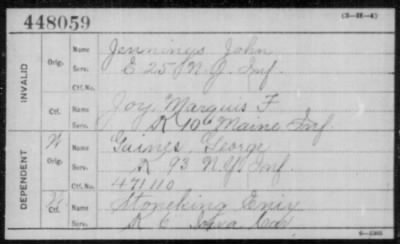 448059
(3-88-4)
INVALID
Orig.
Name Jennings, John
Serv. E 25 N.J. Inf.
Ctf. No.
Ctf.
Name Joy, Marquis F
Serv. K 10" Maine Inf.
DEPENDENT
W
Orig.
Name Gaines, George
Serv. K 93 N.Y. Inf.
Ctf. No. 471110
Ctf.
Name Stoneking
Serv. K 6 Iowa Cav.